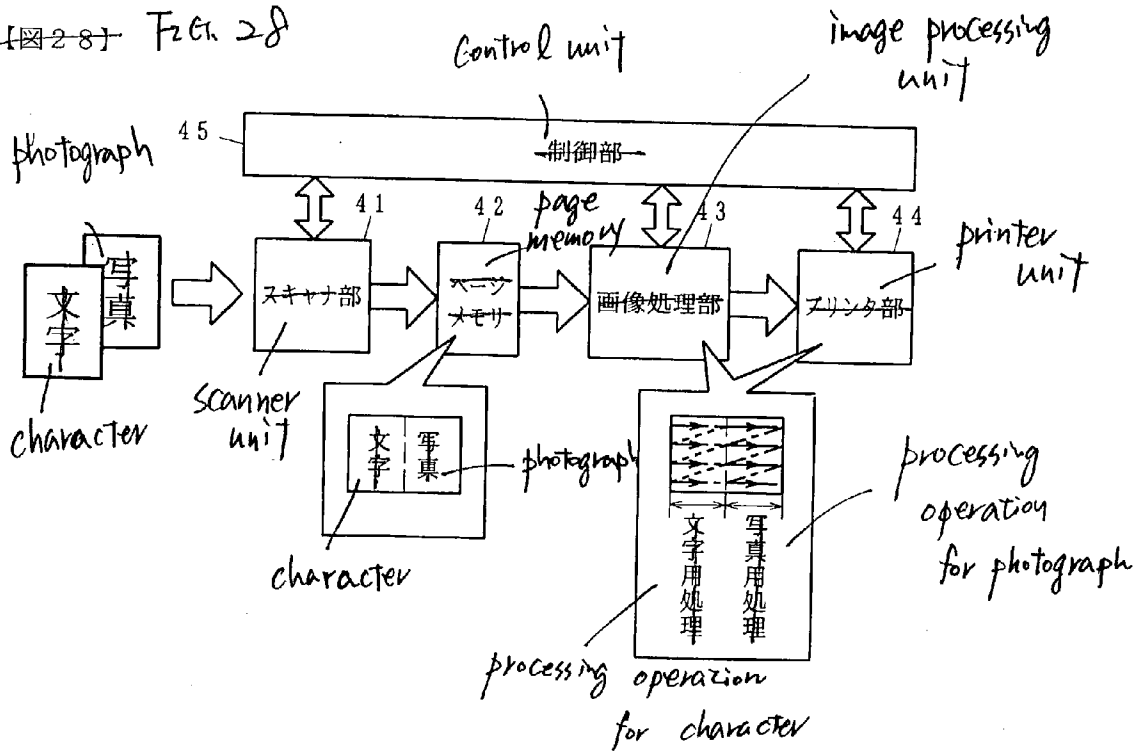 【図２８】 FIG. 28
control unit
image processing
unit
45
制御部
photograph
写真
文字
character
41
スキャナ部
scanner
unit
42
page
memory
ページ
メモリ
43
画像処理部
44
プリンタ部
printer
unit
文字
写真
photograph
character
文字用処理
写真用処理
processing
operation
for photograph
processing operation
for character